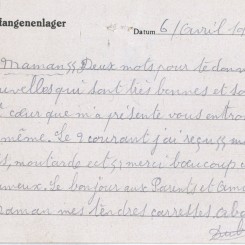 fangenenlager
Datum 6/Avril 19
Maman Deux mots pour te donn
uvelles qui sont très bonnes et so
cœur que m'a présente vous en trou
même. Le 9 courant j'ai reçu m
s, moutarde ect; merci beaucoup
meux. Le bonjour aux Parents et am
aman mes tendres carresses